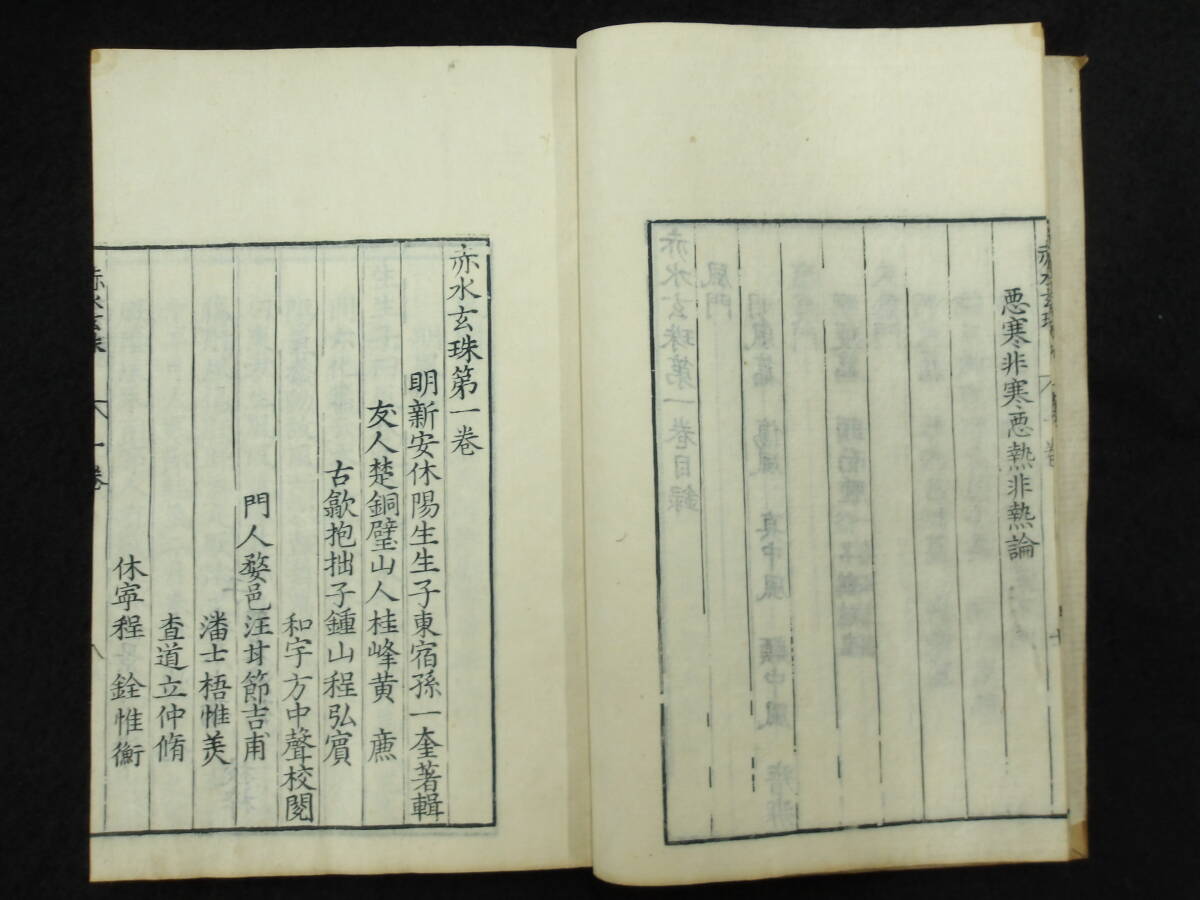 惡寒非寒惡熱非熱論
赤水玄珠
赤水玄珠第一卷
明新安休陽生生子東宿孫一奎著輯
友人楚銅璧山人桂峰黃廌
古歙抱拙子鍾山程弘賔
和宇方中聲校閱
門人婺邑汪甘節吉甫
潘士梧惟美
查道立仲脩
休寧程 銓惟衡
赤水玄珠 一卷